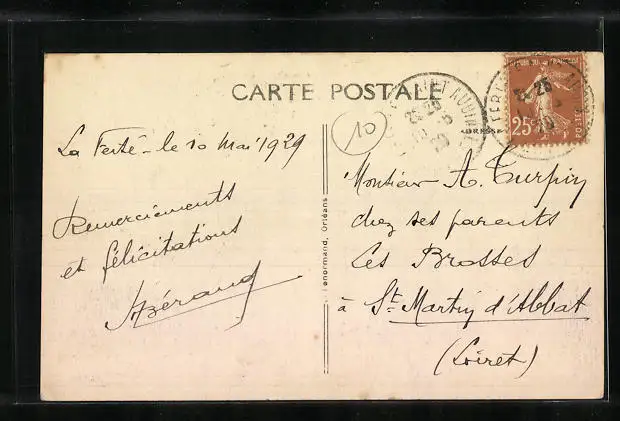 CARTE POSTALE
La Ferté - le 10 Mai 1929
Remerciements
et félicitations
Béraud
10
ADRESSE
Monsieur A. Turpin
chez ses parents
Les Brosses
à St. Martin d'Abbat
(Loiret)
Lenormand, Orléans
SAINT AUBIN
25c
POSTES